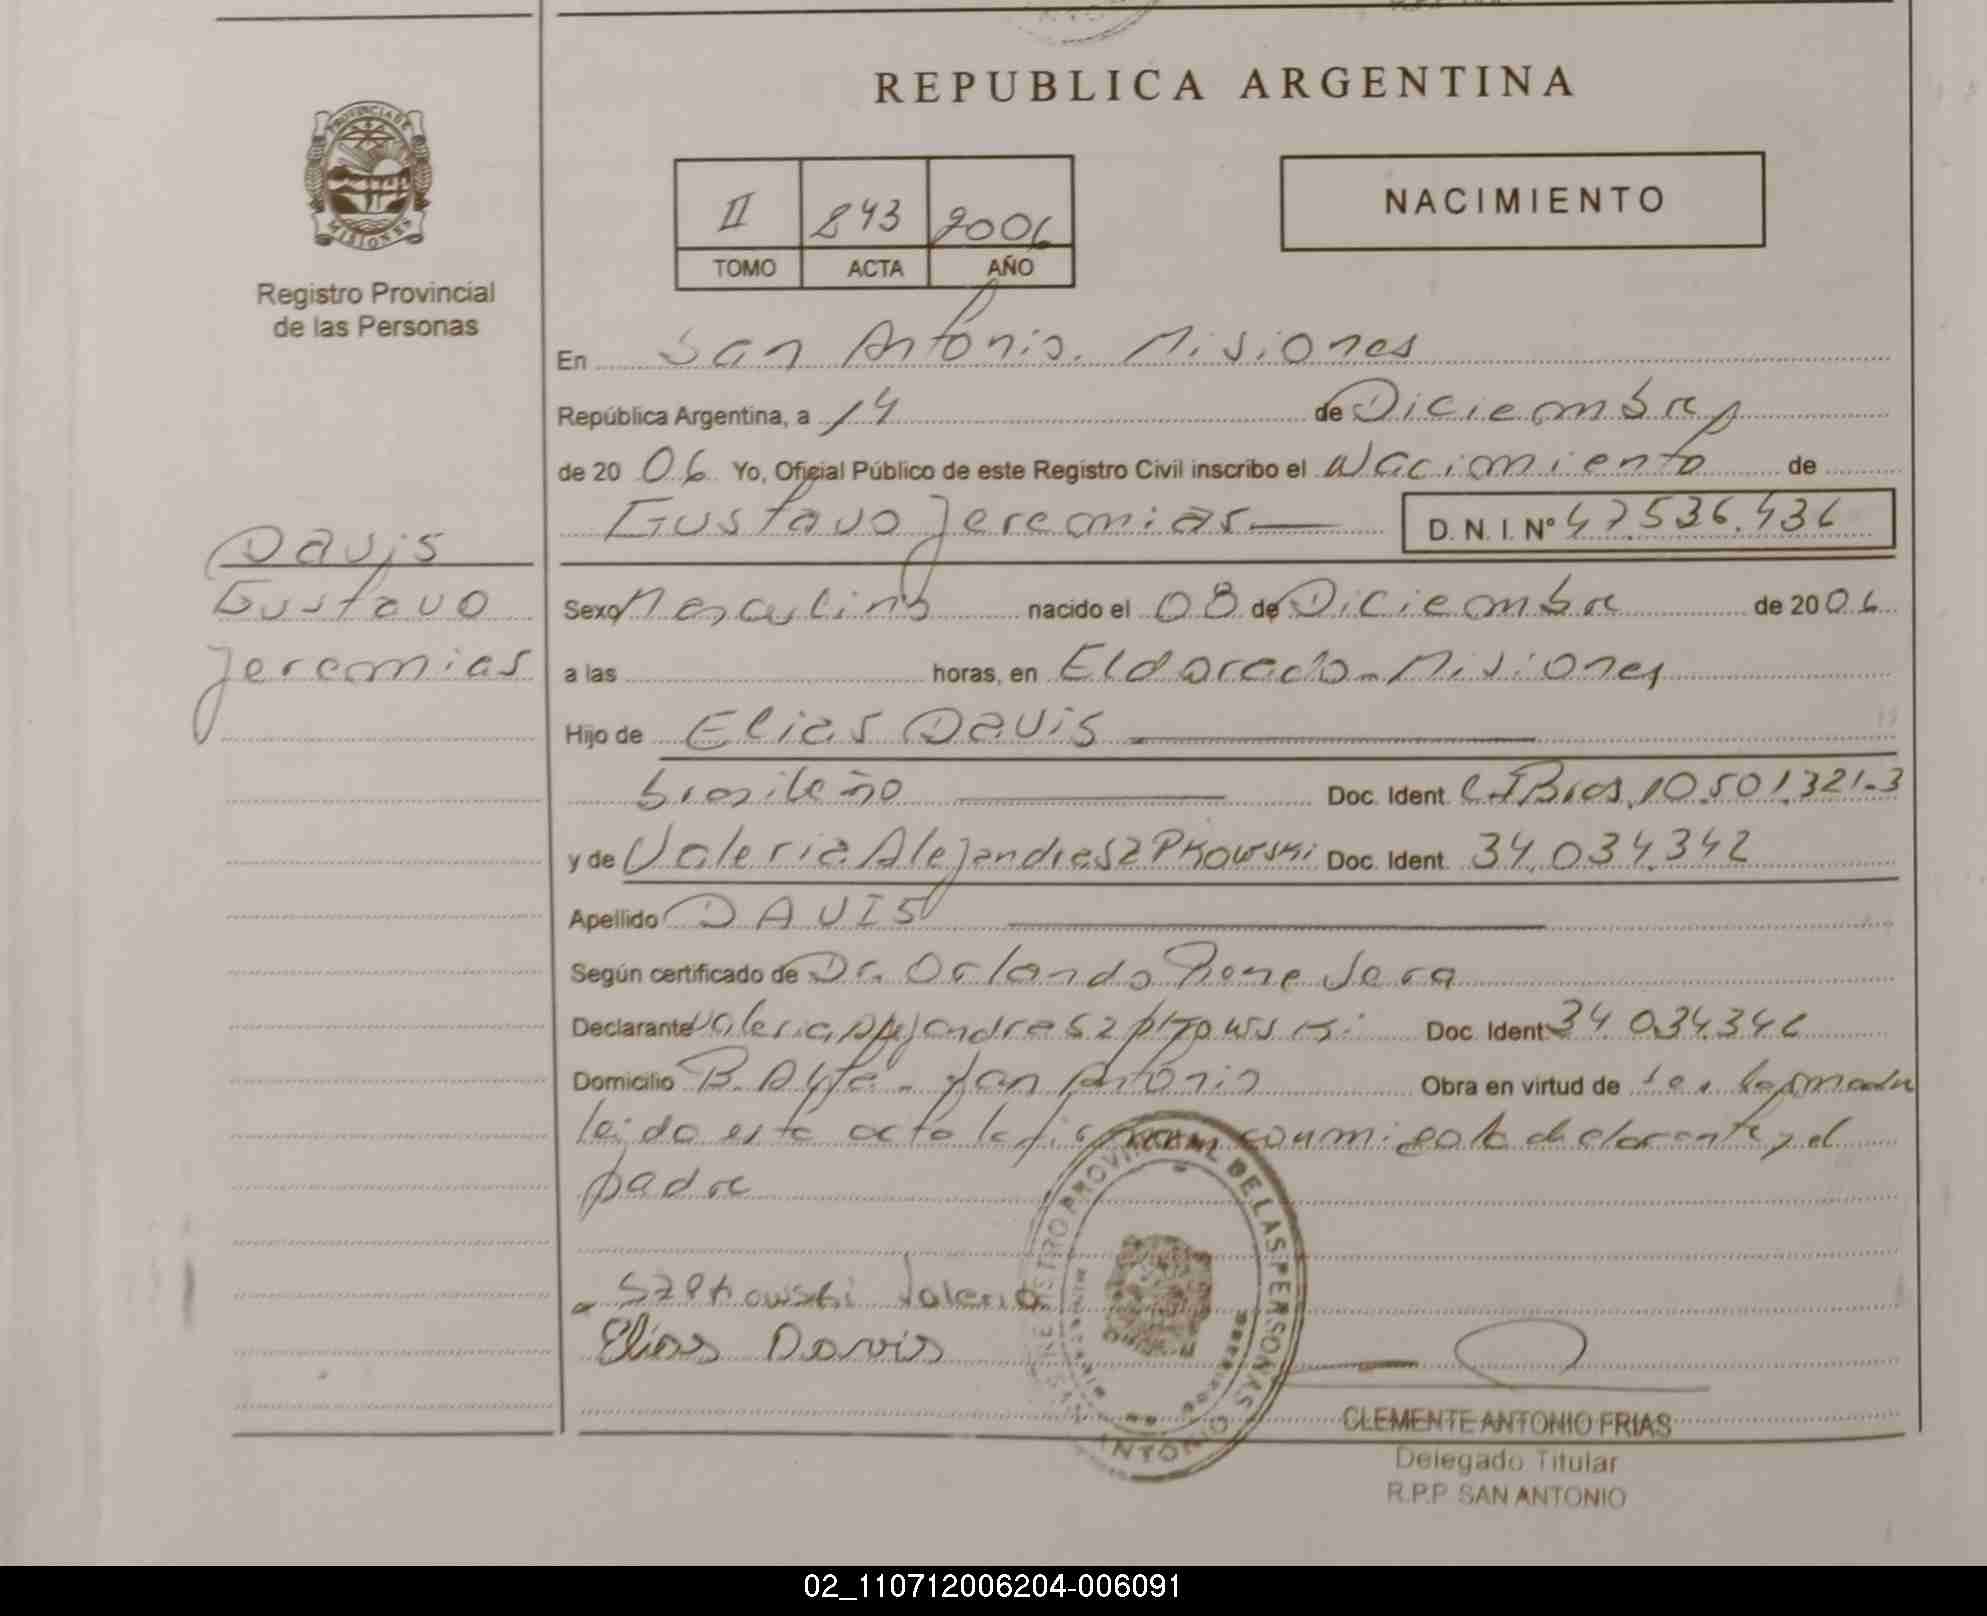 REPUBLICA ARGENTINA
PROVINCIA DE
MISIONES
Registro Provincial
de las Personas
NACIMIENTO
II 243 2006
TOMO ACTA AÑO
En San Antonio. Misiones
República Argentina, a 14 de Diciembre
de 20 06 Yo, Oficial Público de este Registro Civil inscribo el Nacimiento de
Gustavo Jeremias D. N. I. Nº 47536.436
Davis
Gustavo
Jeremias
Sexo Masculino nacido el 08 de Diciembre de 20 06
a las horas, en Eldorado - Misiones
Hijo de Elias Davis
brasileño Doc. Ident. C.I Bras. 10.501.321-3
y de Valeria Alejandra Szpkowski Doc. Ident. 34.034.342
Apellido DAVIS
Según certificado de Dr. Orlando Rene Jara
Declarante Valeria Alejandra Szpkowski Doc. Ident 34.034.342
Domicilio San Antonio Obra en virtud de
leido este acta la conmigo la declarante y el
padre
Szpkowski Valeria
Elias Davis
REGISTRO PROVINCIAL DE LAS PERSONAS
CLEMENTE ANTONIO FRIAS
Delegado Titular
R.P.P SAN ANTONIO
02_110712006204-006091